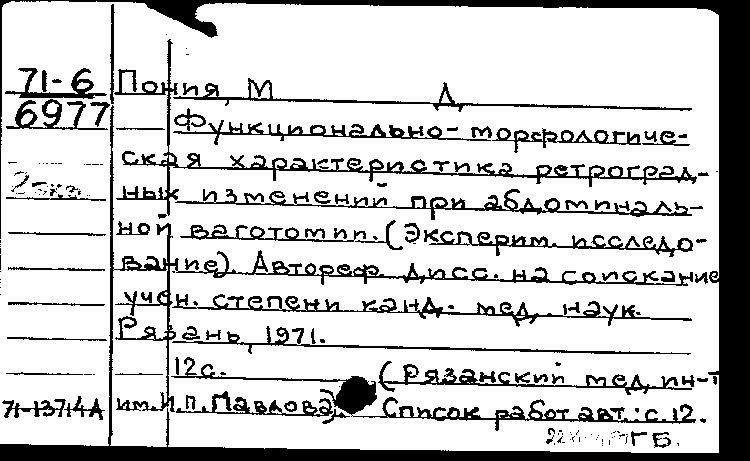 71-6
6977
2 экз.
Пония, М Д,
Функционально-морфологиче-
ская характеристика ретроград-
ных изменений при абдоминаль-
ной ваготомии. (Эксперим. исследо-
вание). Автореф. дисс. на соискание
учен. степени канд. мед. наук.
Рязань, 1971.
12 с. (Рязанский мед. ин-т
им. И.П. Павлова). Список работ авт.: с. 12.
71-13714А
ГБ.